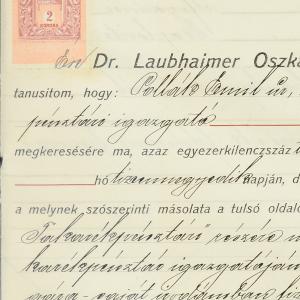 2
KORONA
Én Dr. Laubhaimer Oszká
tanusitom, hogy: Pollák Emil úr,
pénztári igazgató
megkeresésére ma, azaz egyezerkilencszáz
hó tizennegyedik napján, d
a melynek szószerinti másolata a tulsó oldalo
Takarékpénztár" részére
karékpénztár igazgatóján
saját irodámban